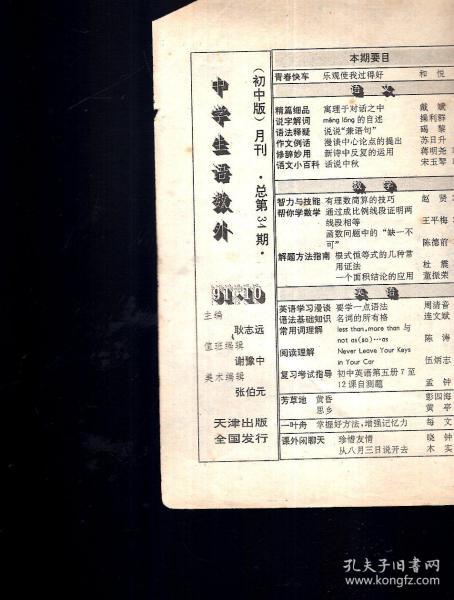 中学生语数外
（初中版）月刊 ·总第34期·
91.10
主编
耿志远
值班编辑
谢豫中
美术编辑
张伯元
天津出版
全国发行
本期要目
青春快车 乐观使我过得好 和悦
语文
精篇细品 寓理于对话之中 戴斌
说字解词 méng lóng 的自述 操利群
语法释疑 说说“兼语句” 碣黎
作文例话 漫谈中心论点的提出 苏日升
修辞妙用 新诗中反复的运用 蒋明尧
语文小百科 话说中秋 宋玉琴
数学
智力与技能 有理数简算的技巧 赵贤
帮你学数学 通过成比例线段证明两
线段相等 王平梅
函数问题中的“缺一不
可” 陈德前
解题方法指南 根式恒等式的几种常
用证法 杜震
一个面积结论的应用 董振荣
英语
英语学习漫谈 要学一点语法 周清音
语法基础知识 名词的所有格 连文斌
常用词理解 less than, more than 与
not as(so)…as 陈涛
阅读理解 Never Leave Your Keys
in Your Car 伍炳志
复习考试指导 初中英语第五册7至
12课自测题 孟钟
芳草地 黄昏 彭四海
思乡 黄亭
一叶舟 掌握好方法，增强记忆力 每文
课外闲聊天 珍惜友情 晓钟
从八月三日说开去 木实
孔夫子旧书网
www.kongfz.com